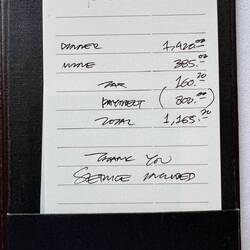 DINNER 1,420.00
WINE 385.00
TAX 160.20
PAYMENT (800.00)
TOTAL 1,165.20
THANK YOU
SERVICE INCLUDED